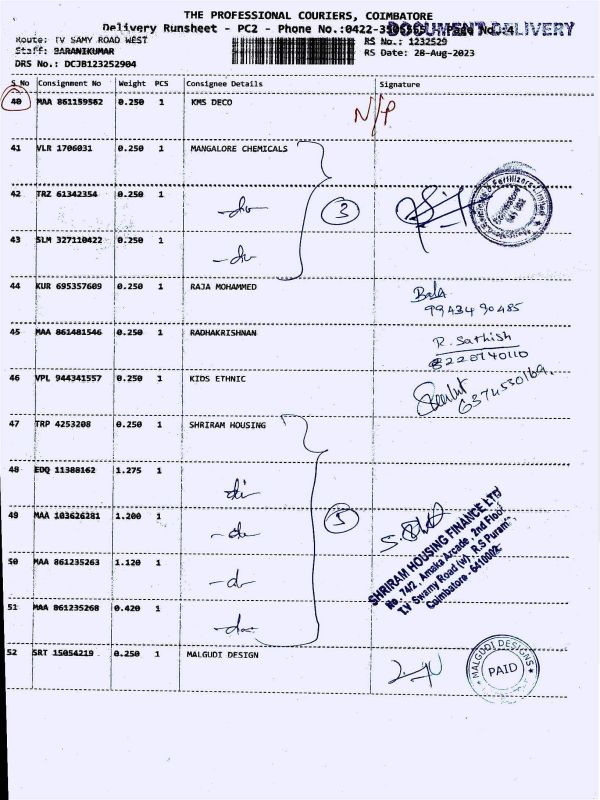 THE PROFESSIONAL COURIERS, COIMBATORE
Delivery Runsheet - PC2 - Phone No.:0422- Page No.:4
DOCUMENT DELIVERY
Route: TV SAMY ROAD WEST RS No.: 1232529
Staff: BARANIKUMAR RS Date: 28-Aug-2023
DRS No.: DCJB123252904
S No Consignment No Weight PCS Consignee Details Signature
40 MAA 861159562 0.250 1 KMS DECO N/P
41 VLR 1706031 0.250 1 MANGALORE CHEMICALS
42 TRZ 61342354 0.250 1 -do- 3
43 SLM 327110422 0.250 1 -do-
44 KUR 695357609 0.250 1 RAJA MOHAMMED Bala
9943490485
45 MAA 861481546 0.250 1 RADHAKRISHNAN R. Sathish
8220740110
46 VPL 944341557 0.250 1 KIDS ETHNIC
6374530169.
47 TRP 4253208 0.250 1 SHRIRAM HOUSING
48 EDQ 11388162 1.275 1 -do-
49 MAA 103626281 1.200 1 -do- 5
50 MAA 861235263 1.120 1 -do-
51 MAA 861235268 0.420 1 -do-
SHRIRAM HOUSING FINANCE LTD
No. 74/2, Amaka Arcade, 2nd Floor
T.V Swamy Road (W), R.S Puram
Coimbatore - 6410002
52 SRT 15054219 0.250 1 MALGUDI DESIGN
MALGUDI DESIGNS
PAID